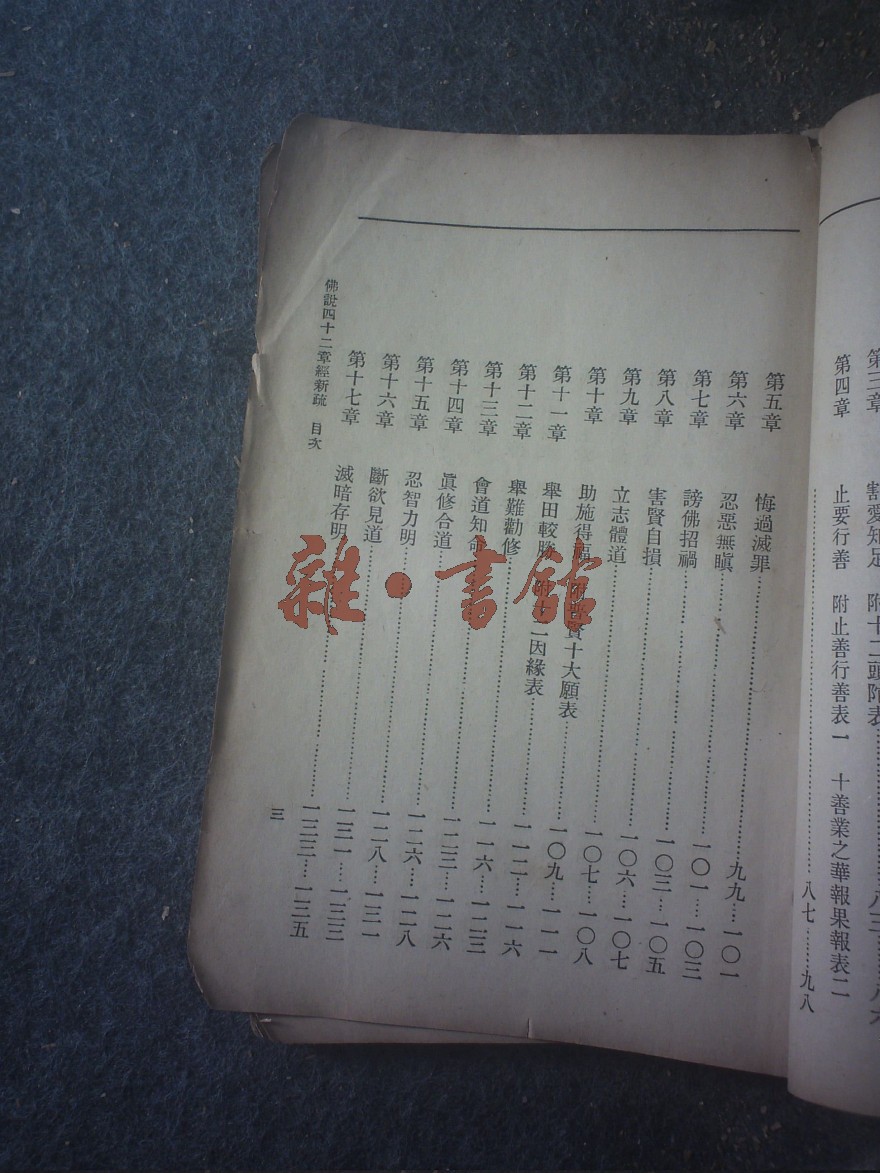 第三章 割愛知足 附十二頭陀表……八三……八六
第四章 止要行善 附止善行善表一 十善業之華報果報表二
……八七……九八
第五章 悔過滅罪……九九…一〇一
第六章 忍惡無瞋……一〇一…一〇三
第七章 謗佛招禍……一〇三…一〇五
第八章 害賢自損……一〇六…一〇七
第九章 立志體道……一〇七…一〇八
第十章 助施得福 附普賢十大願表……一〇九…一一一
第十一章 舉田較勝 附十二因緣表……一一二…一一六
第十二章 舉難勸修……一一六…一二三
第十三章 會道知命……一二三…一二六
第十四章 眞修合道……一二六…一二八
第十五章 忍智力明……一二八…一三一
第十六章 斷欲見道……一三一…一三三
第十七章 滅暗存明……一三三…一三五
佛說四十二章經新疏 目次
三
雜·書館